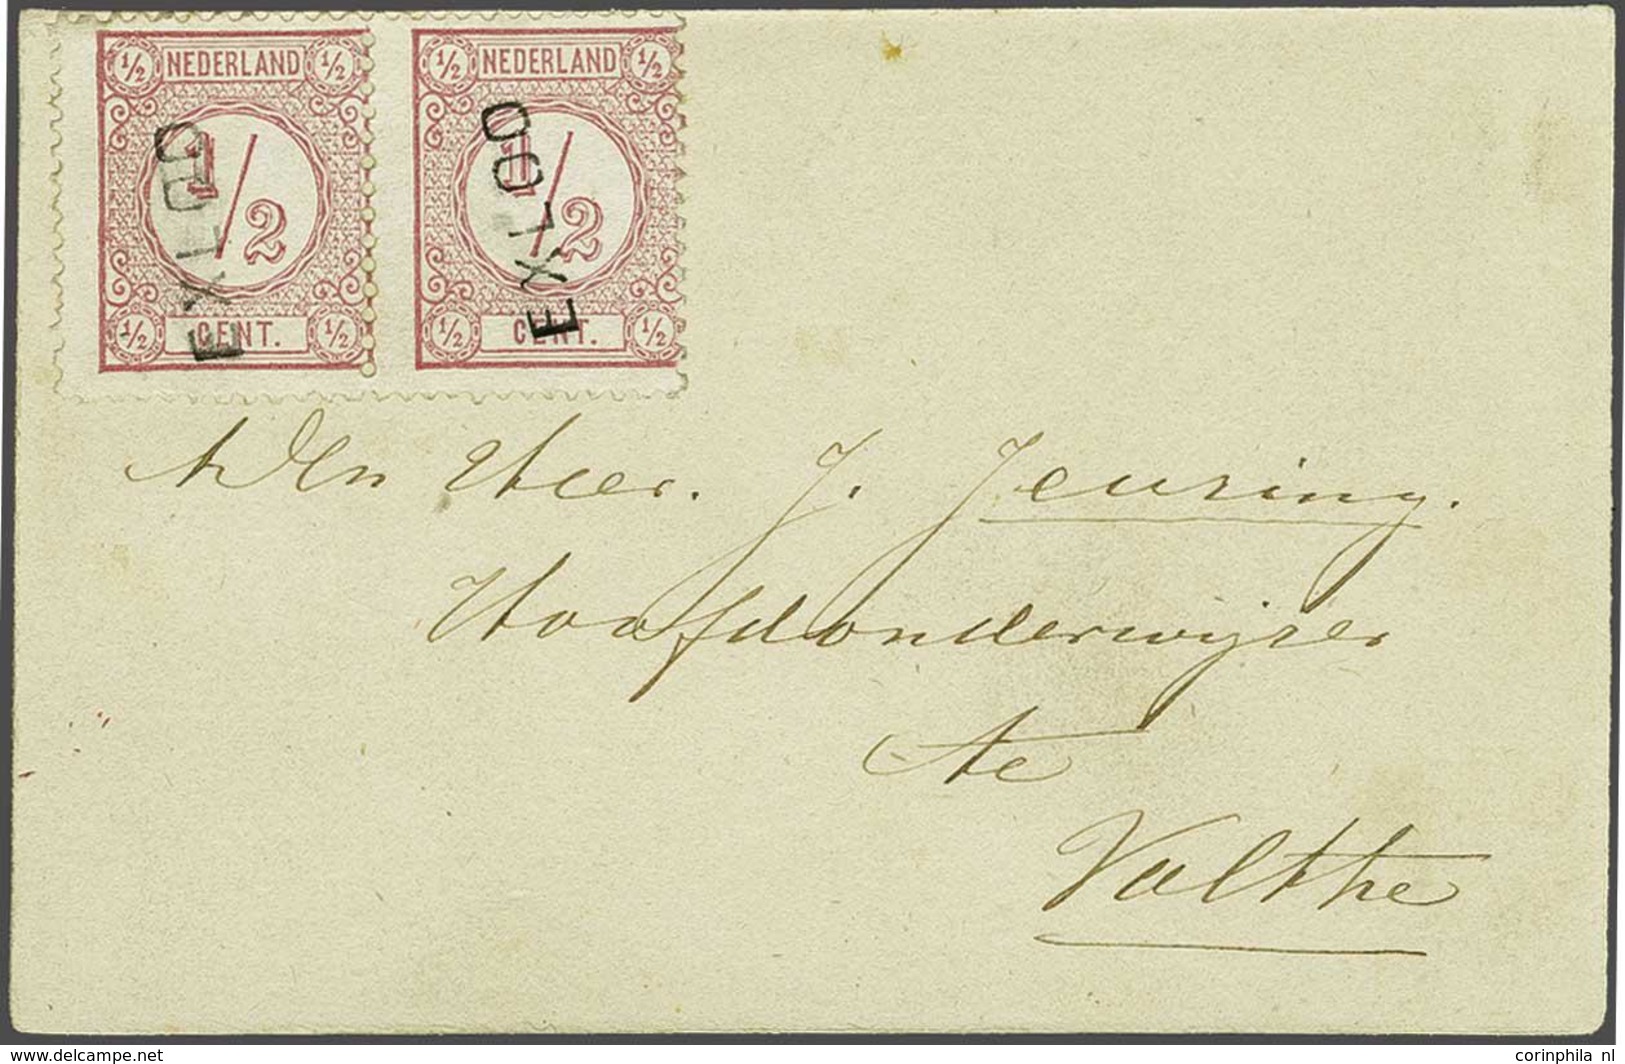 ½ NEDERLAND ½
½ CENT. ½
1/2
EXLOO
½ NEDERLAND ½
½ CENT. ½
1/2
EXLOO
Den Heer. J. Jeuring.
Hoofdonderwijzer
te
Valthe
www.delcampe.net
corinphila nl